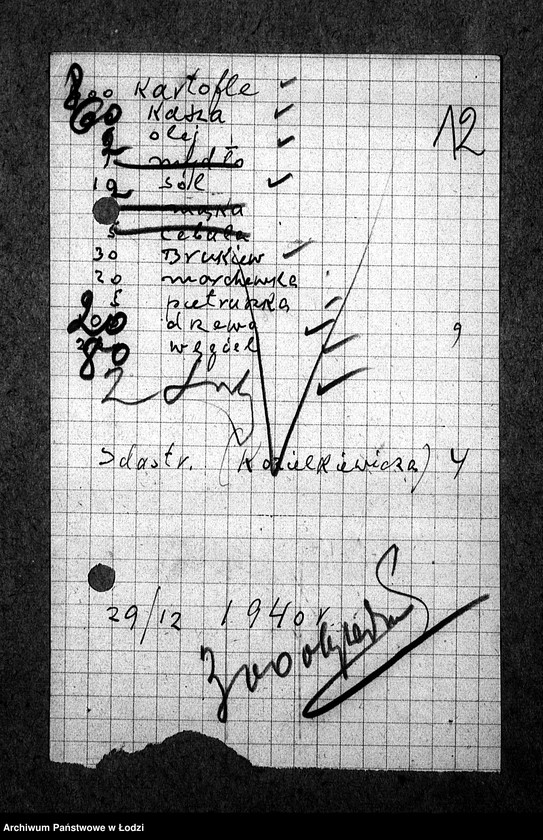 800 Kartofle
12
60 Kasza
2 olej
mydło
12 sól
mąka
5 cebula
30 Brukiew
20 marchewka
5 pietruszka
200 drzewo
9
80 węgiel
2
Sdastr. (Kozielkiewicza) 4
29/12 1940 r
300
Archiwum Państwowe w Łodzi